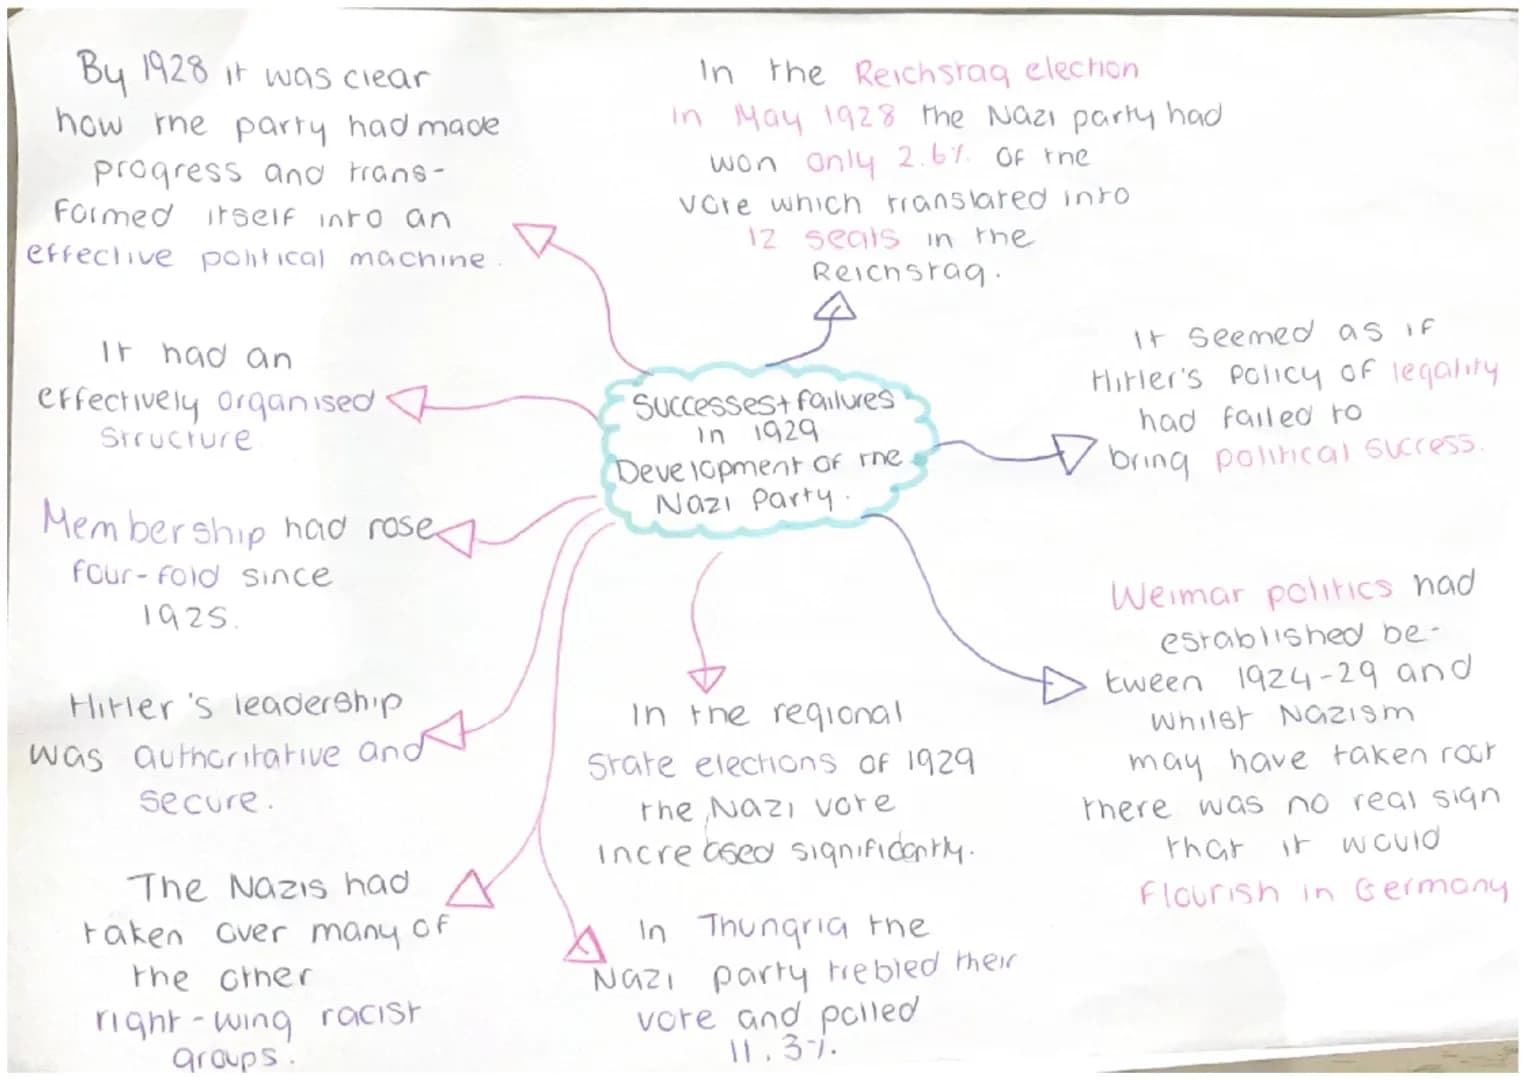 By 1928 it was clear
how the party had made
progress and trans-
formed itself into an
effective political machine.
It had an
effectively organised
structure.
Membership had rose
four-fold since
1925.
Hitler's leadership
was authoritative and
secure.
The Nazis had
taken over many of
the other
right-wing racist
groups.
In the Reichstag election
in May 1928 the Nazi party had
won only 2.6% of the
vote which translated into
12 seats in the
Reichstag.
Successes + failures
in 1929
Development of the
Nazi Party.
In the regional
state elections of 1929
the Nazi vote
increased significantly.
In Thungria the
Nazi party trebled their
vote and polled
11.3%.
It seemed as if
Hitler's policy of legality
had failed to
bring political success.
Weimar politics had
established be-
tween 1924-29 and
whilst Nazism
may have taken root
there was no real sign
that it would
flourish in Germany